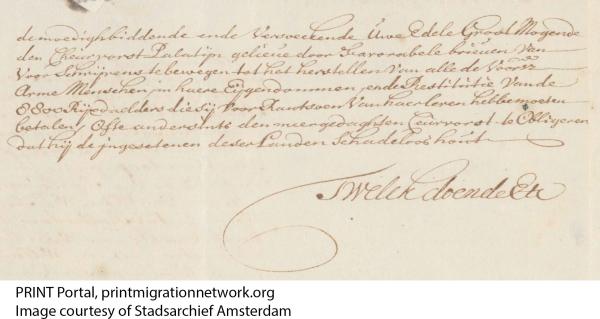 demoedigh biddende ende Versoeckende Uwe Edele Groot Mogende
den Cheurvorst Palatijn gelieve door favorabele brieven Van
Voorschrijvens te bewegen tot het herstellen Van alle de Voorsz
Arme Menschen in haere Eijgendommen, ende Restitutie Vande
8800 Rijxdaelders die sij Voor Rantsoen Van haer leven hebben moeten
betalen, Ofte andersints den meergedachten Cheurvorst te Obligeren
dat hij de ingesetenen deser Landen Schadeloos hout
Twelck doende Etc
PRINT Portal, printmigrationnetwork.org
Image courtesy of Stadsarchief Amsterdam